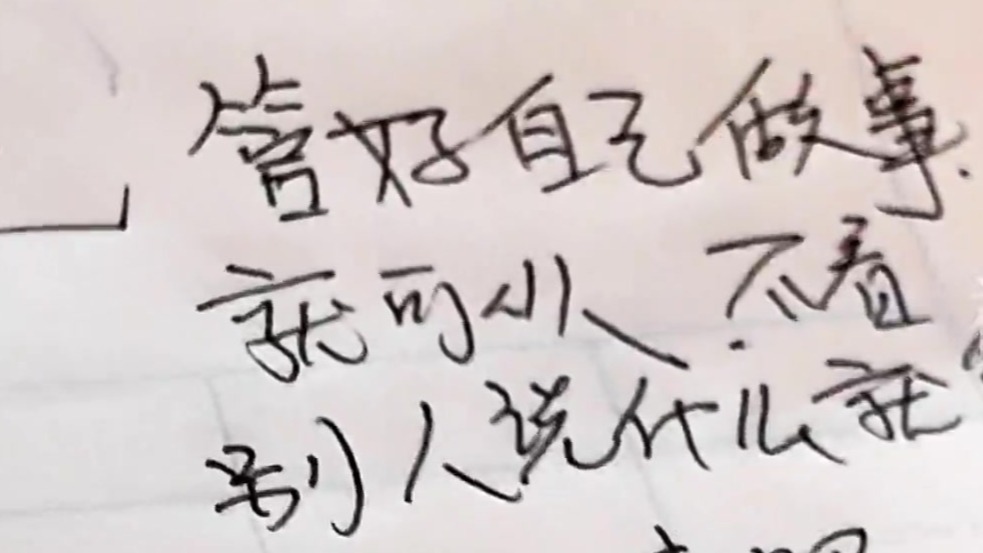 管好自己做事.
就可以.不看
别人说什么就